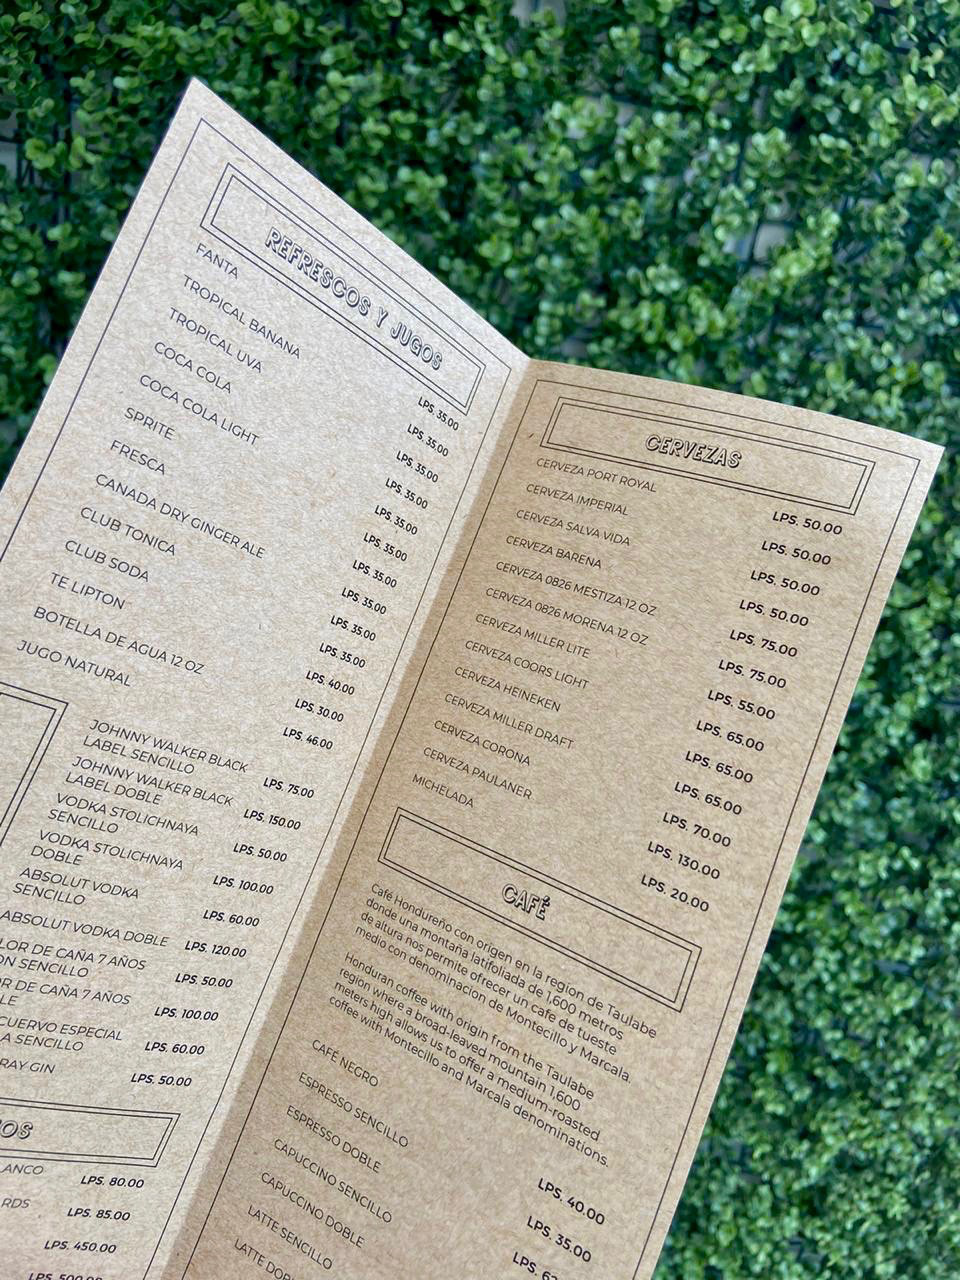 REFRESCOS Y JUGOS
FANTA LPS. 35.00
TROPICAL BANANA LPS. 35.00
TROPICAL UVA LPS. 35.00
COCA COLA LPS. 35.00
COCA COLA LIGHT LPS. 35.00
SPRITE LPS. 35.00
FRESCA LPS. 35.00
CANADA DRY GINGER ALE LPS. 35.00
CLUB TONICA LPS. 35.00
CLUB SODA LPS. 35.00
TE LIPTON LPS. 40.00
BOTELLA DE AGUA 12 OZ LPS. 30.00
JUGO NATURAL LPS. 46.00
JOHNNY WALKER BLACK
LABEL SENCILLO LPS. 75.00
JOHNNY WALKER BLACK
LABEL DOBLE LPS. 150.00
VODKA STOLICHNAYA
SENCILLO LPS. 50.00
VODKA STOLICHNAYA
DOBLE LPS. 100.00
ABSOLUT VODKA
SENCILLO LPS. 60.00
ABSOLUT VODKA DOBLE LPS. 120.00
LOR DE CAÑA 7 AÑOS
ON SENCILLO LPS. 50.00
OR DE CAÑA 7 AÑOS
LE LPS. 100.00
CUERVO ESPECIAL
A SENCILLO LPS. 60.00
RAY GIN LPS. 50.00
OS
LANCO LPS. 80.00
RDS LPS. 85.00
LPS. 450.00
LPS. 500.00
CERVEZAS
CERVEZA PORT ROYAL LPS. 50.00
CERVEZA IMPERIAL LPS. 50.00
CERVEZA SALVA VIDA LPS. 50.00
CERVEZA BARENA LPS. 50.00
CERVEZA 0826 MESTIZA 12 OZ LPS. 75.00
CERVEZA 0826 MORENA 12 OZ LPS. 75.00
CERVEZA MILLER LITE LPS. 55.00
CERVEZA COORS LIGHT LPS. 65.00
CERVEZA HEINEKEN LPS. 65.00
CERVEZA MILLER DRAFT LPS. 65.00
CERVEZA CORONA LPS. 70.00
CERVEZA PAULANER LPS. 130.00
MICHELADA LPS. 20.00
CAFÉ
Café Hondureño con origen en la region de Taulabe
donde una montaña latifoliada de 1,600 metros
de altura nos permite ofrecer un cafe de tueste
medio con denominacion de Montecillo y Marcala.
Honduran coffee with origin from the Taulabe
region where a broad-leaved mountain 1,600
meters high allows us to offer a medium-roasted
coffee with Montecillo and Marcala denominations.
CAFÉ NEGRO LPS. 40.00
ESPRESSO SENCILLO LPS. 35.00
ESPRESSO DOBLE LPS.
CAPUCCINO SENCILLO
CAPUCCINO DOBLE
LATTE SENCILLO
LATTE DOBL